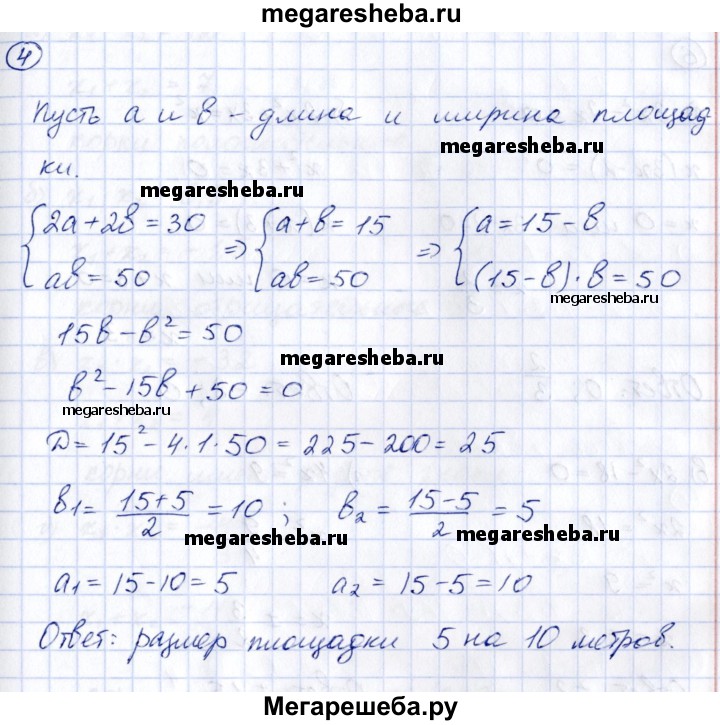 megaresheba.ru
4
Пусть a и b - длина и ширина площад
ки.
megaresheba.ru
{2a+2b=30 => {a+b=15 => {a=15-b
ab=50 ab=50 (15-b)·b=50
megaresheba.ru
15b-b²=50
megaresheba.ru
b²-15b+50=0
megaresheba.ru
megaresheba.ru
D=15²-4·1·50=225-200=25
b₁=(15+5)/2=10; b₂=(15-5)/2=5
megaresheba.ru
megaresheba.ru
a₁=15-10=5 a₂=15-5=10
Ответ: размер площадки 5 на 10 метров.
Мегарешеба.ру